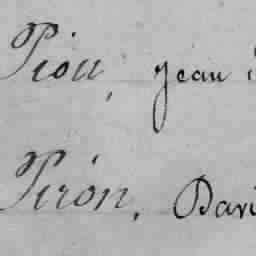 Piou, Jean
Piron, Davi